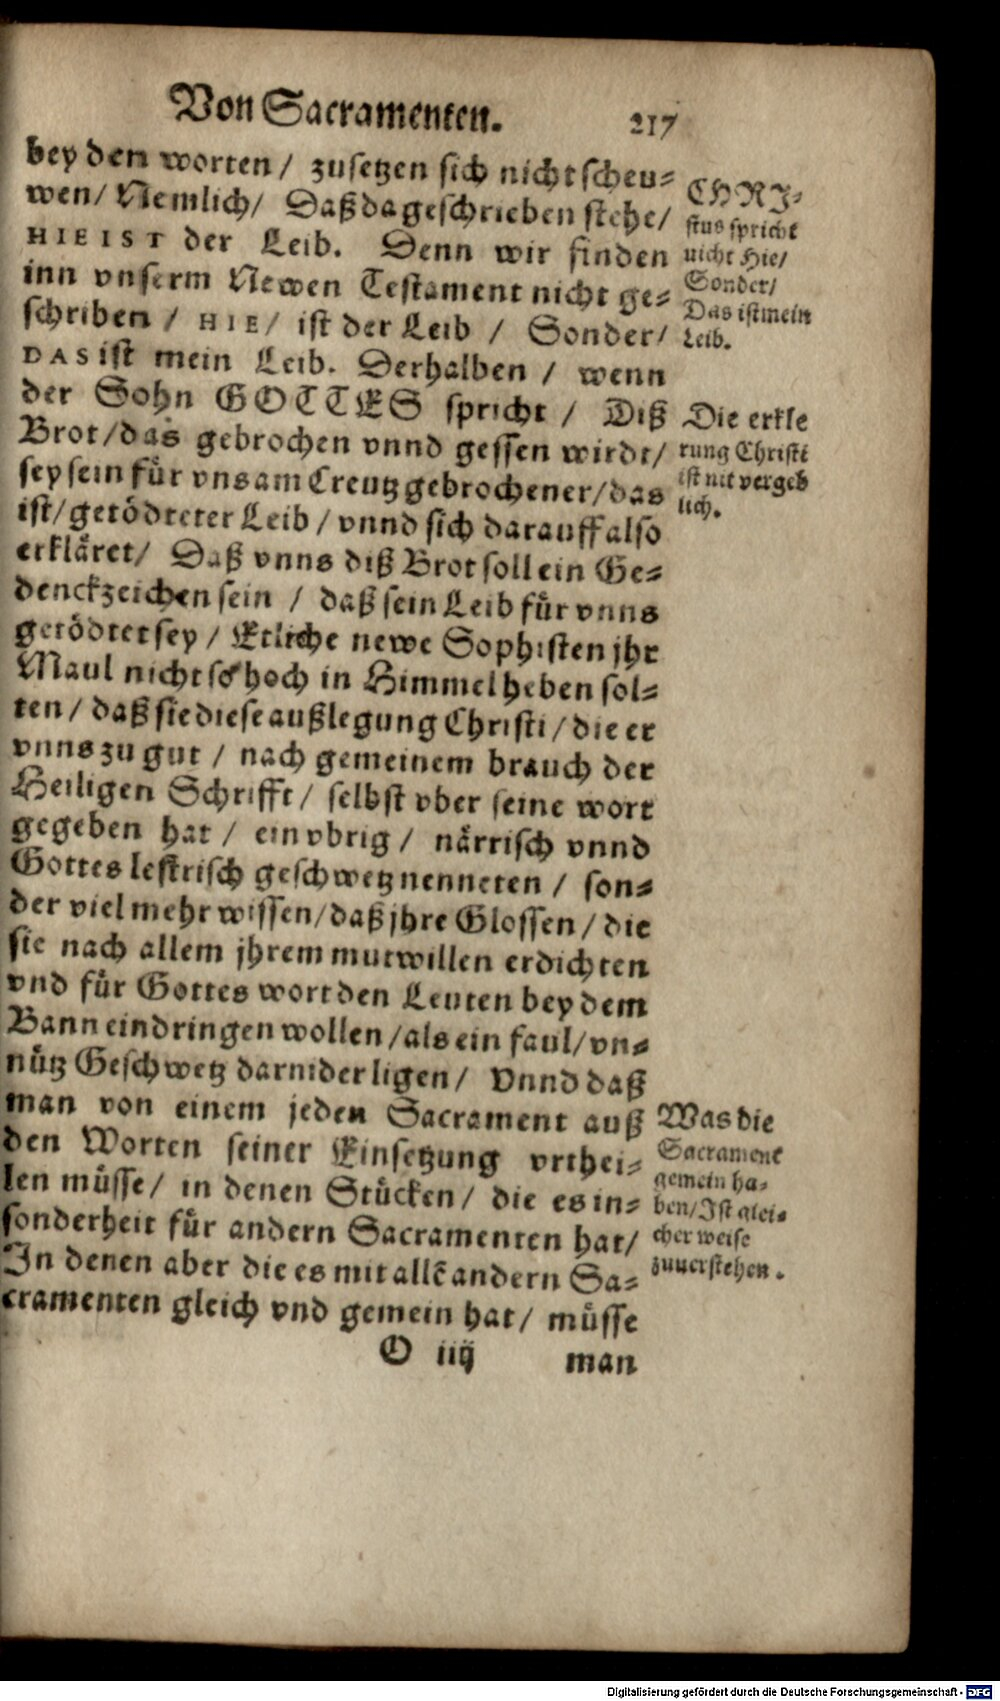 Von Sacramenten. 217
bey den worten / zusetzen sich nicht scheu-
wen / Nemlich / Daß da geschrieben stehe /
HIE IST der Leib. Denn wir finden
inn vnserm Newen Testament nicht ge-
schriben / HIE / ist der Leib / Sonder /
DAS ist mein Leib. Derhalben / wenn
der Sohn GOTTES spricht / Diß
Brot / das gebrochen vnnd gessen wirdt /
sey sein für vns am Creutz gebrochener / das
ist / getödteter Leib / vnnd sich darauff also
erkläret / Daß vnns diß Brot soll ein Ge-
denckzeichen sein / daß sein Leib für vnns
getödtet sey / Etliche newe Sophisten jhr
Maul nicht so hoch in Himmel heben sol-
ten / daß sie diese außlegung Christi / die er
vnns zu gut / nach gemeinem brauch der
Heiligen Schrifft / selbst vber seine wort
gegeben hat / ein vbrig / närrisch vnnd
Gottes lestrisch geschwetz nenneten / son-
der viel mehr wissen / daß jhre Glossen / die
sie nach allem jhrem mutwillen erdichten
vnd für Gottes wort den Leuten bey dem
Bann eindringen wollen / als ein faul / vn-
nütz Geschwetz darnider ligen / Vnnd daß
man von einem jeden Sacrament auß
den Worten seiner Einsetzung vrthei-
len müsse / in denen Stücken / die es in-
sonderheit für andern Sacramenten hat /
In denen aber die es mit allē andern Sa-
cramenten gleich vnd gemein hat / müsse
O iiij man
CHRI-
stus spricht
nicht Hie /
Sonder /
Das ist mein
Leib.
Die erkle
rung Christi
ist nit vergeb
lich.
Was die
Sacrament
gemein ha-
ben / Ist glei-
cher weise
zuuerstehen.
Digitalisierung gefördert durch die Deutsche Forschungsgemeinschaft - DFG